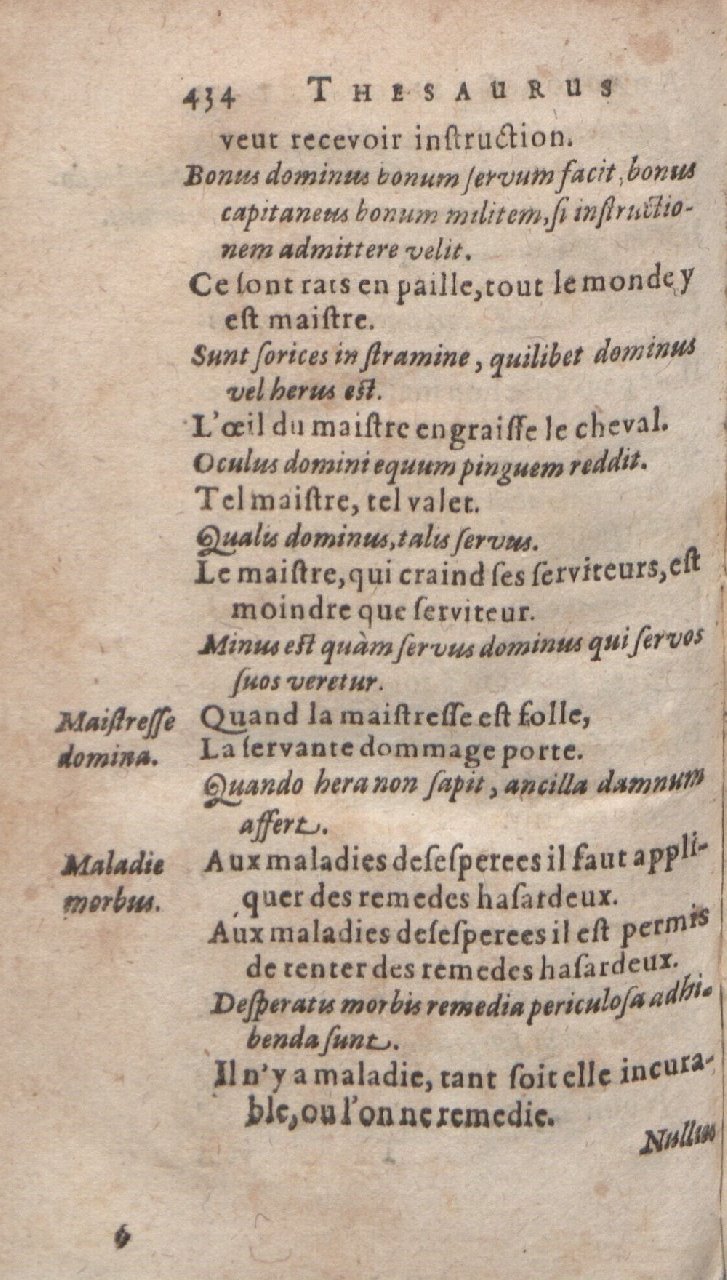 434 THESAURUS
veut recevoir inſtruction.
Bonus dominus bonum ſervum facit, bonus
capitaneus bonum militem, ſi inſtructio-
nem admittere velit.
Ce ſont rats en paille, tout le monde y
eſt maiſtre.
Sunt ſorices in ſtramine, quilibet dominus
vel herus eſt.
L'œil du maiſtre engraiſſe le cheval.
Oculus domini equum pinguem reddit.
Tel maiſtre, tel valet.
Qualis dominus, talis ſervus.
Le maiſtre, qui craind ſes ſerviteurs, eſt
moindre que ſerviteur.
Minus eſt quàm ſervus dominus qui ſervos
ſuos veretur.
Maiſtreſſe Quand la maiſtreſſe eſt folle,
domina. La ſervante dommage porte.
Quando hera non ſapit, ancilla damnum
affert.
Maladie Aux maladies deſeſperees il faut appli-
morbus. quer des remedes haſardeux.
Aux maladies deſeſperees il eſt permis
de tenter des remedes haſardeux.
Deſperatis morbis remedia periculoſa adhi-
benda ſunt.
Il n'y a maladie, tant ſoit elle incura-
ble, ou l'on ne remedie.
Nullus